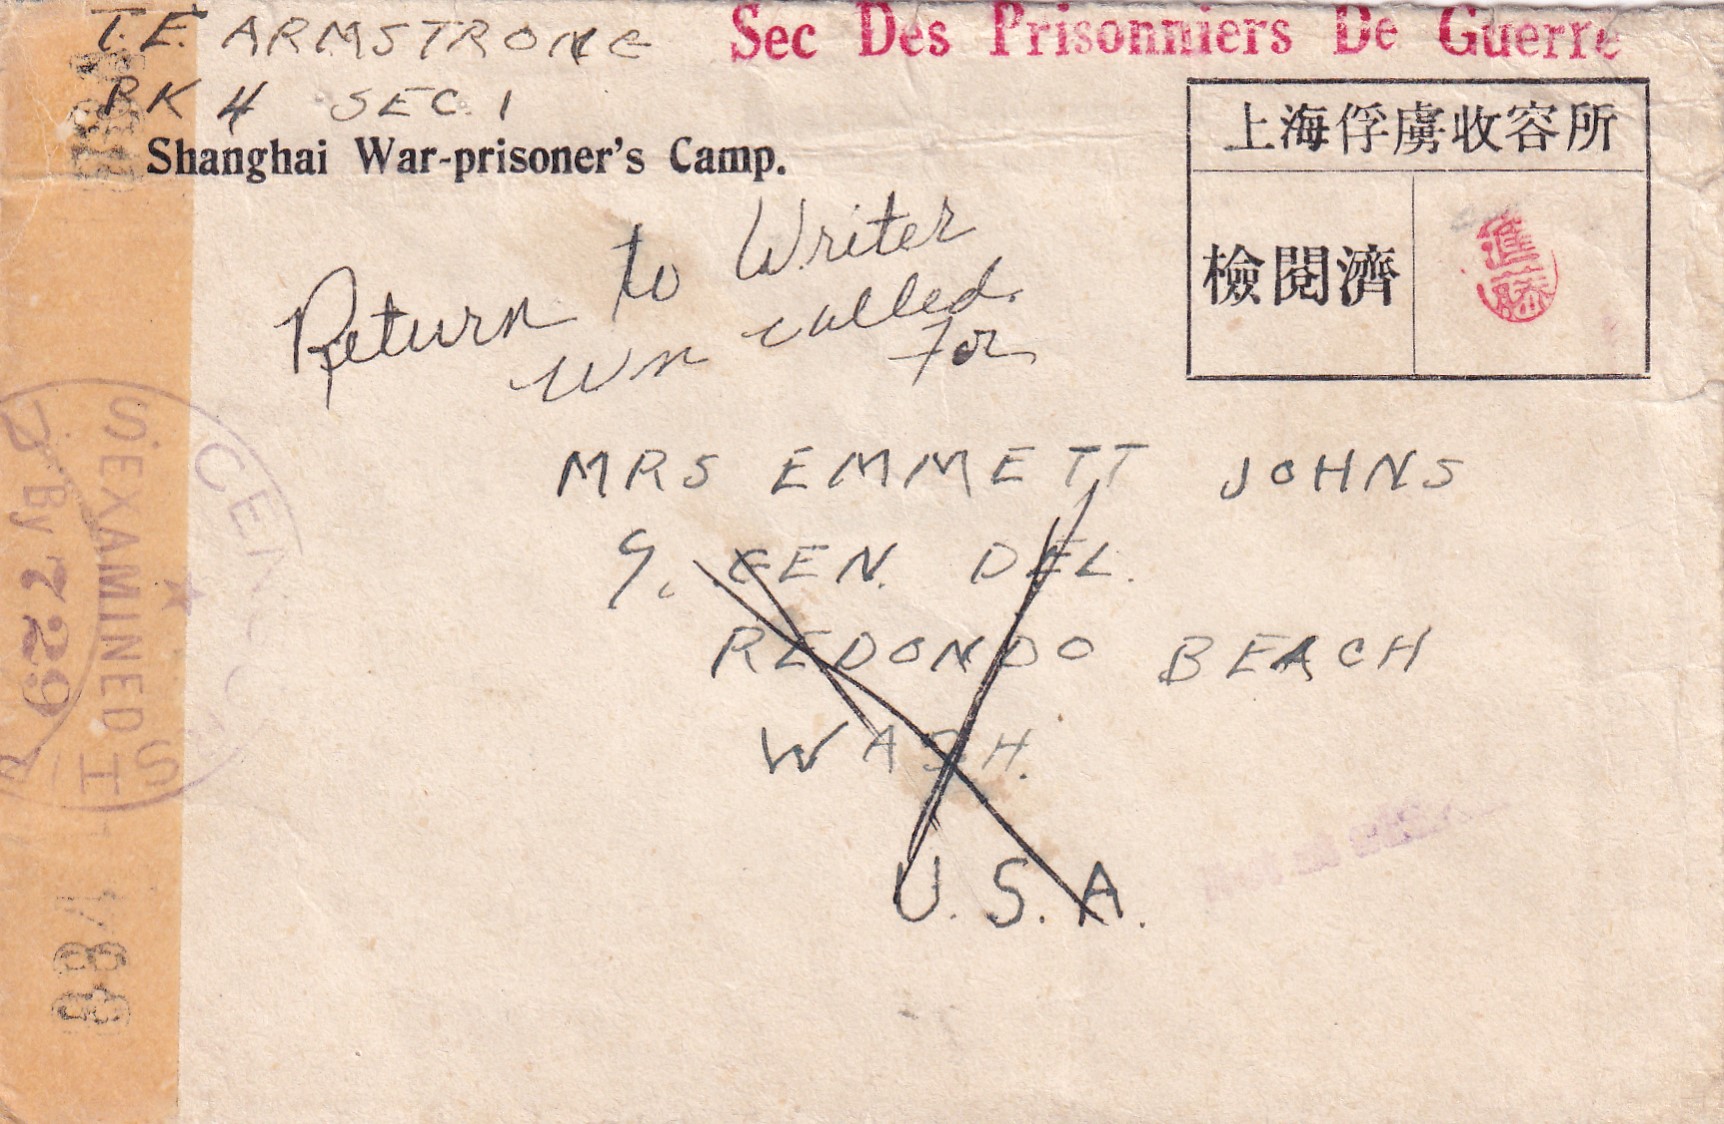 T.E. ARMSTRONG
BK 4 SEC. 1
Shanghai War-prisoner's Camp.
Sec Des Prisonniers De Guerre
上海俘虜收容所
檢閱濟
進藤
Return to Writer
un called
For
MRS EMMETT JOHNS
GEN. DEL.
REDONDO BEACH
WASH.
U.S.A.
S. CENSORSH
EXAMINED
By 7229